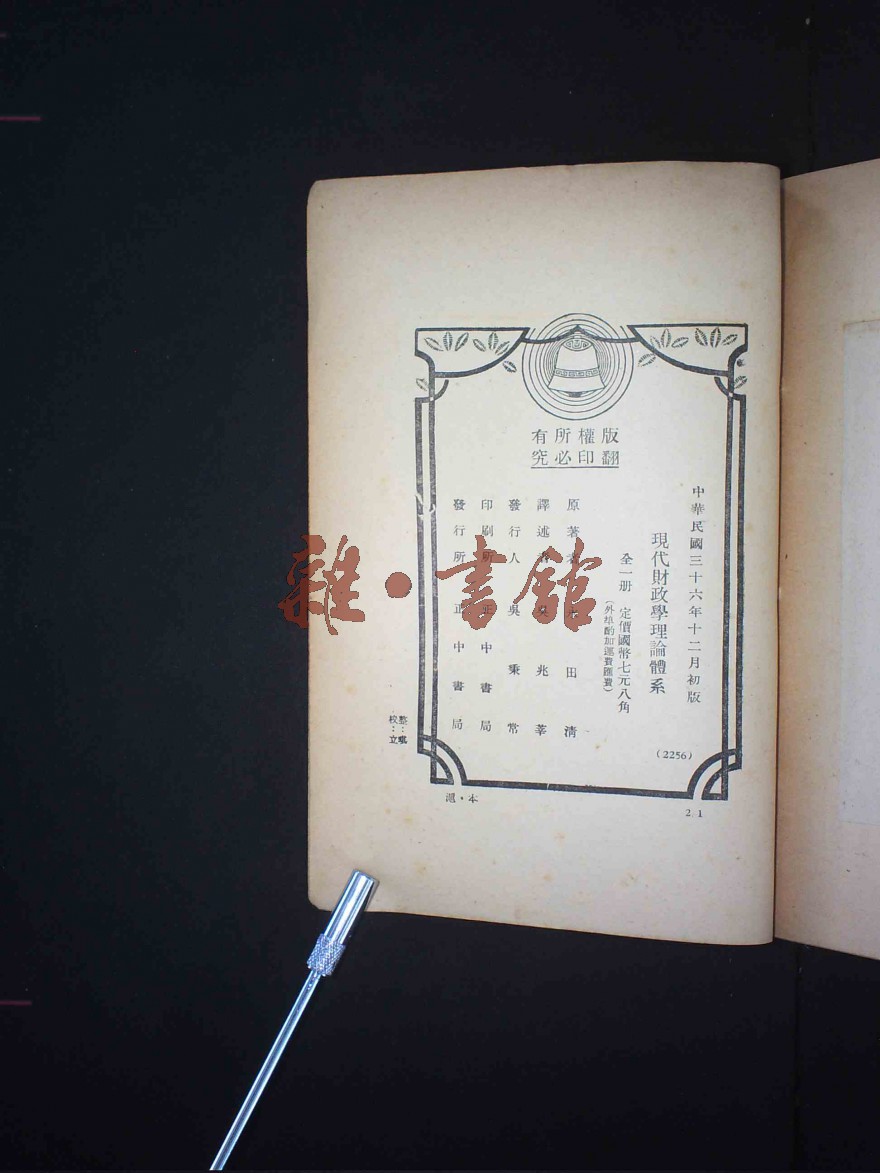 版權所有
翻印必究
中華民國三十六年十二月初版
現代財政學理論體系
全一册 定價國幣七元八角
(外埠酌加運費匯費)
原著者 永田清
譯述者 吳兆莘
發行人 吳秉常
印刷所 正中書局
發行所 正中書局
(2256)
校:立
滬・本
2 1
雜・書館